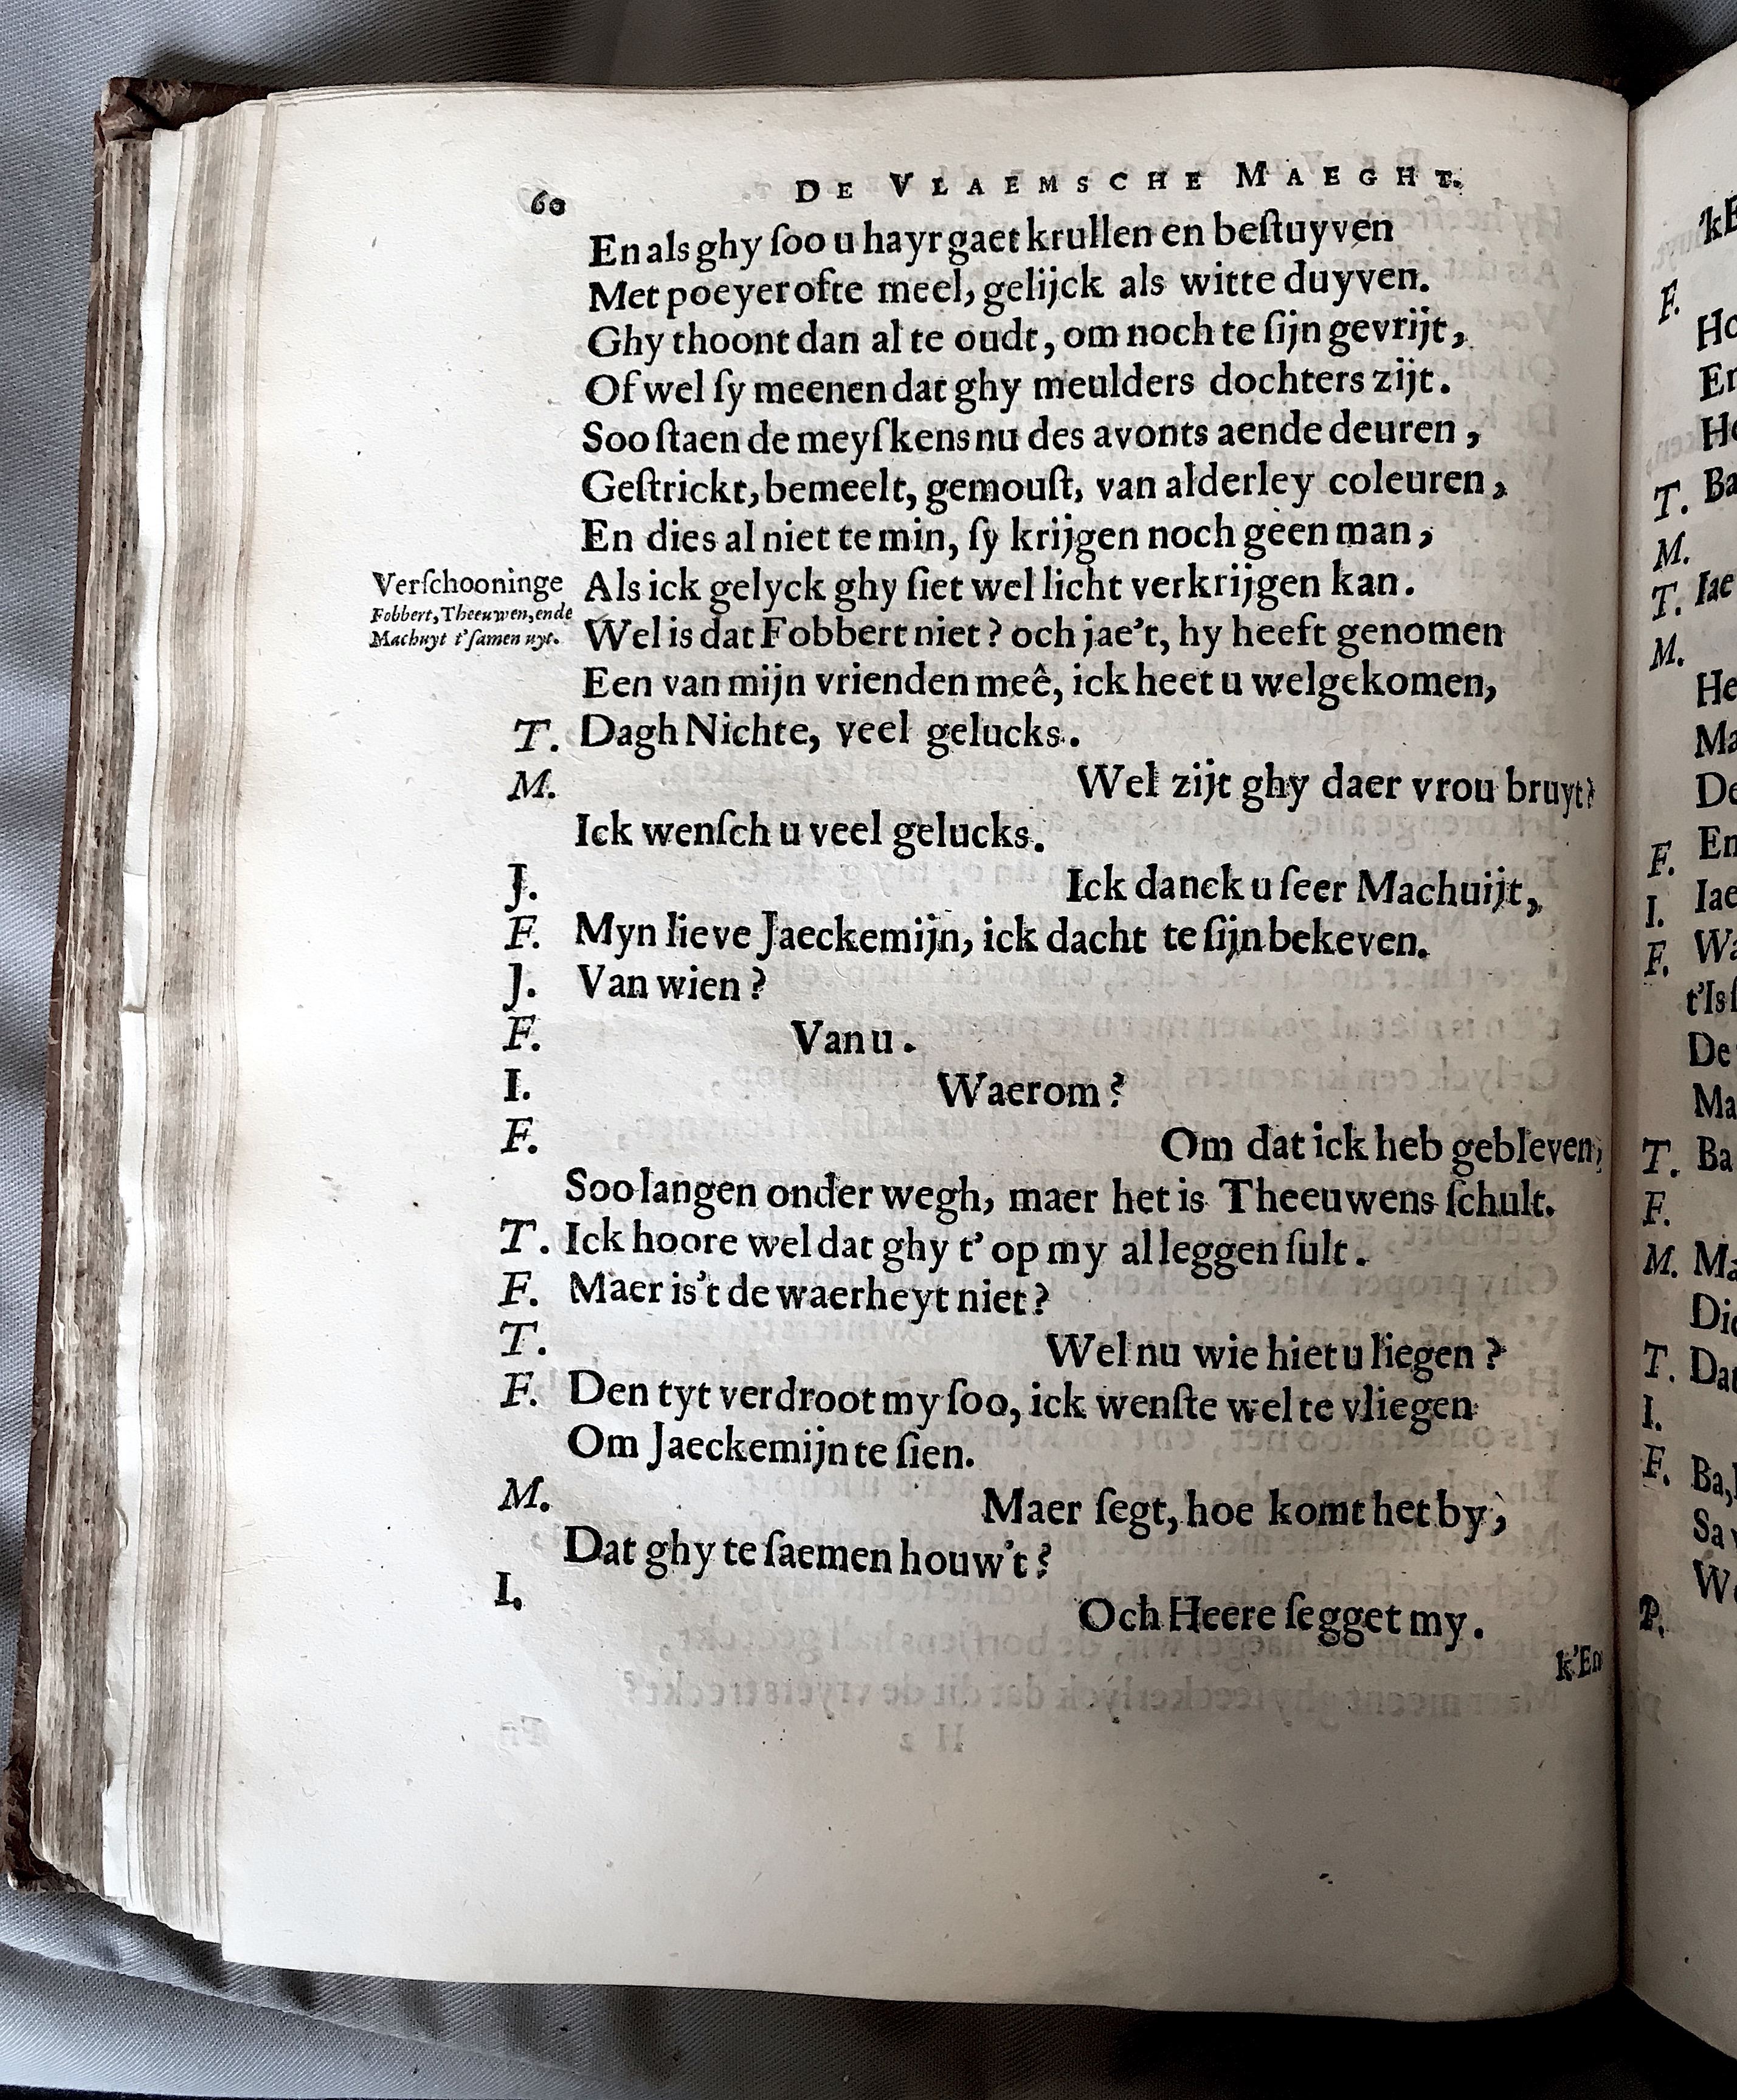 60 DE VLAEMSCHE MAEGHT.
En als ghy ſoo u hayr gaet krullen en beſtuyven
Met poeyer ofte meel, gelijck als witte duyven.
Ghy thoont dan al te oudt, om noch te ſijn gevrijt,
Of wel ſy meenen dat ghy meulders dochters zijt.
Soo ſtaen de meyſkens nu des avonts aende deuren,
Geſtrickt, bemeelt, gemouſt, van alderley coleuren,
En dies al niet te min, ſy krijgen noch geen man,
Verſchooninge
Fobbert, Theeuwen, ende
Machuyt t'ſamen uyt.
Als ick gelyck ghy ſiet wel licht verkrijgen kan.
Wel is dat Fobbert niet? och jae't, hy heeft genomen
Een van mijn vrienden meê, ick heet u welgekomen,
T. Dagh Nichte, veel gelucks.
M. Wel zijt ghy daer vrou bruyt?
Ick wenſch u veel gelucks.
J. Ick danck u ſeer Machuijt,
F. Myn lieve Jaeckemijn, ick dacht te ſijn bekeven.
J. Van wien?
F. Van u.
I. Waerom?
F. Om dat ick heb gebleven,
Soo langen onder wegh, maer het is Theeuwens ſchult.
T. Ick hoore wel dat ghy t' op my al leggen ſult.
F. Maer is't de waerheyt niet?
T. Wel nu wie hiet u liegen?
F. Den tyt verdroot my ſoo, ick wenſte wel te vliegen
Om Jaeckemijn te ſien.
M. Maer ſegt, hoe komt het by,
Dat ghy te ſaemen houw't?
I. Och Heere ſegget my.
k'En
kE
F.
Ho
En
Ho
T. Ba
M.
T. Iae
M.
He
Ma
De
En
F.
I. Iae
F. Wa
t'Is
De
Ma
T. Ba
F.
M. Ma
Die
T. Dat
I.
F. Ba,
Sa
We
P.